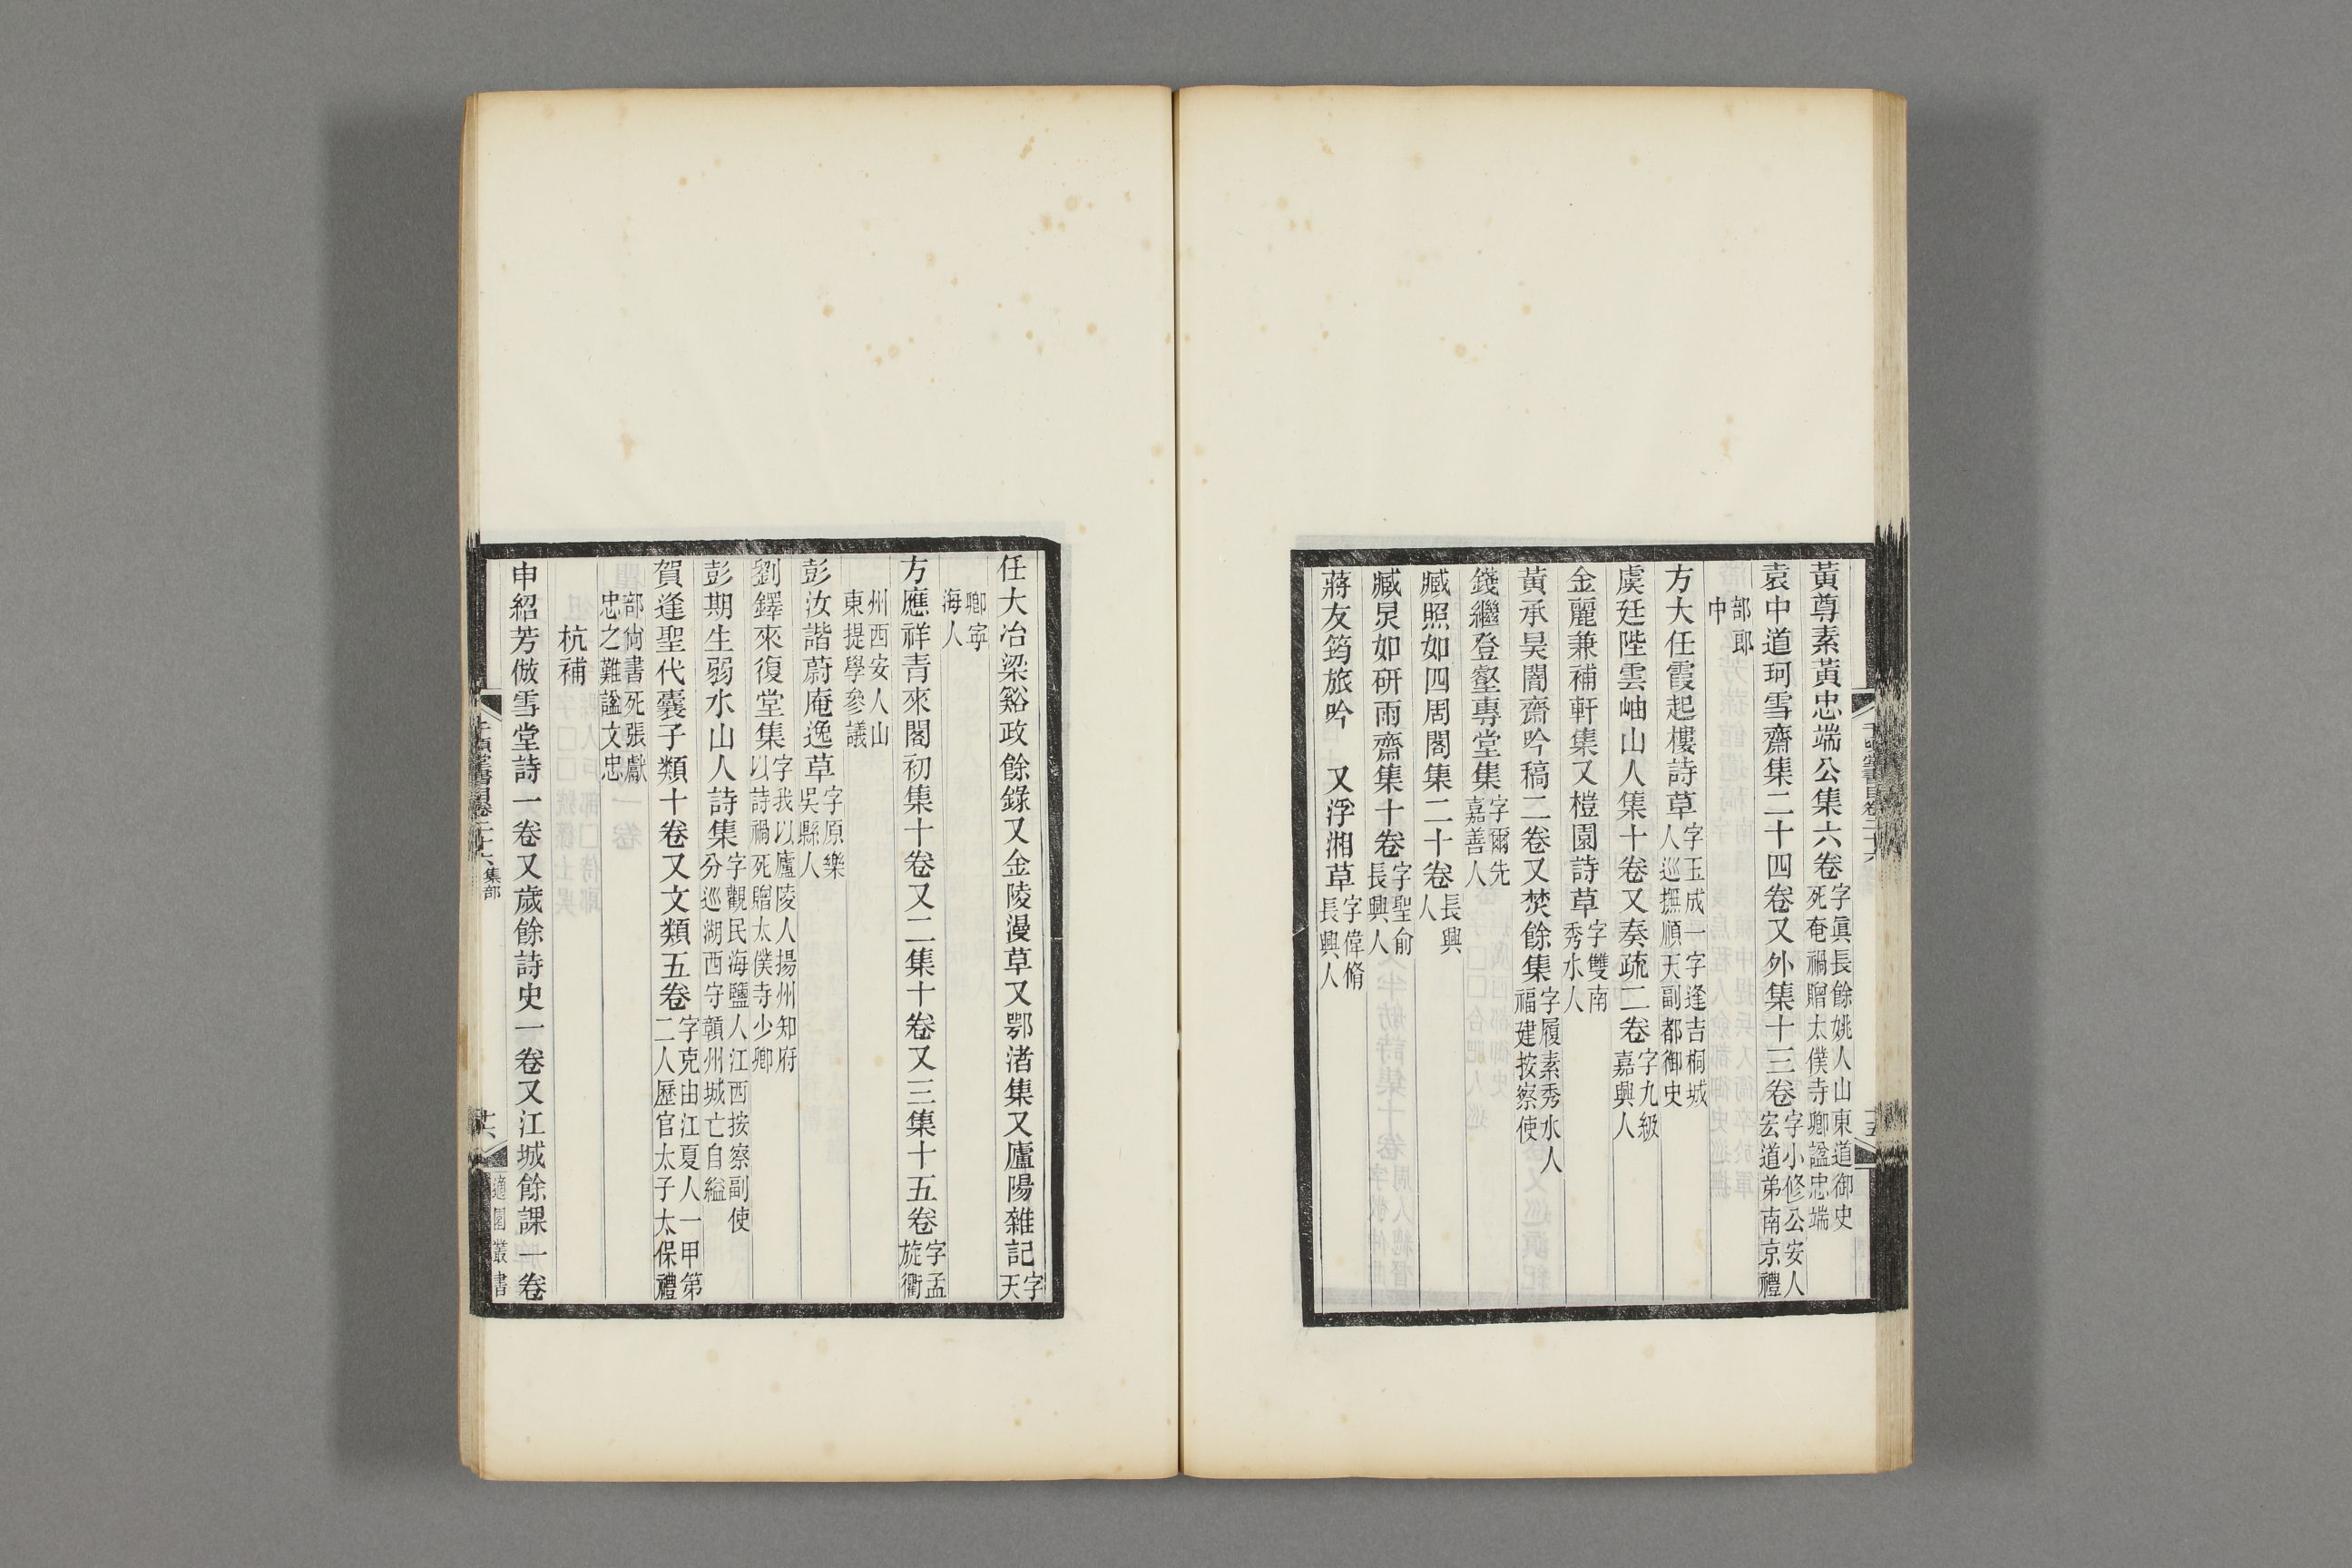 黃尊素黃忠端公集六卷字眞長餘姚人山東道御史死奄禍贈太僕寺卿諡忠端
袁中道珂雪齋集二十四卷又外集十三卷字小修公安人宏道弟南京禮
部郎中
方大任霞起樓詩草字玉成一字逢吉桐城人巡撫順天副都御史
虞廷陛雲岫山人集十卷又奏疏二卷字九級嘉興人
金麗兼補軒集又榿園詩草字雙南秀水人
黃承昊闇齋吟稿二卷又焚餘集字履素秀水人福建按察使
錢繼登壑專堂集字爾先嘉善人
臧照如四周閣集二十卷長興人
臧炅如研雨齋集十卷字聖俞長興人
蔣友筠旅吟　又浮湘草字偉脩長興人
任大冶梁谿政餘錄又金陵漫草又鄂渚集又廬陽雜記字天
卿寧海人
方應祥青來閣初集十卷又二集十卷又三集十五卷字孟旋衢
州西安人山東提學參議
彭汝諧蔚庵逸草字原樂吳縣人
劉鐸來復堂集字我以廬陵人揚州知府以詩禍死贈太僕寺少卿
彭期生弱水山人詩集字觀民海鹽人江西按察副使分巡湖西守贛州城亡自縊
賀逢聖代囊子類十卷又文類五卷字克由江夏人一甲第二人歷官太子太保禮
部尙書死張獻忠之難諡文忠
杭補
申紹芳倣雪堂詩一卷又歲餘詩史一卷又江城餘課一卷
千頃堂書目卷二十六集部
十六
適園叢書